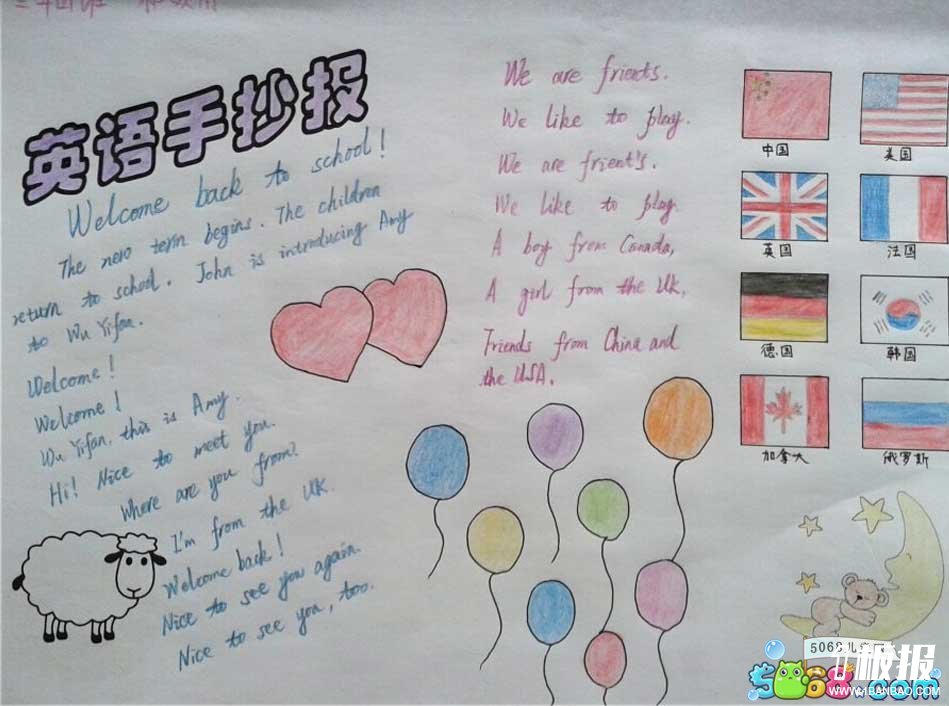 英语手抄报
Welcome back to school!
The new term begins. The children
return to school. John is introducing Amy
to Wu Yifan.
Welcome!
Welcome!
Wu Yifan, this is Amy.
Hi! Nice to meet you.
Where are you from?
I'm from the UK.
Welcome back!
Nice to see you again.
Nice to see you, too.
We are frients.
We like to play.
We are frient's.
We like to play.
A boy from Canada,
A girl from the UK,
Friends from China and
the USA.
中国
美国
英国
法国
德国
韩国
加拿大
俄罗斯
板报
5068.com
WWW.41BANBAO.COM